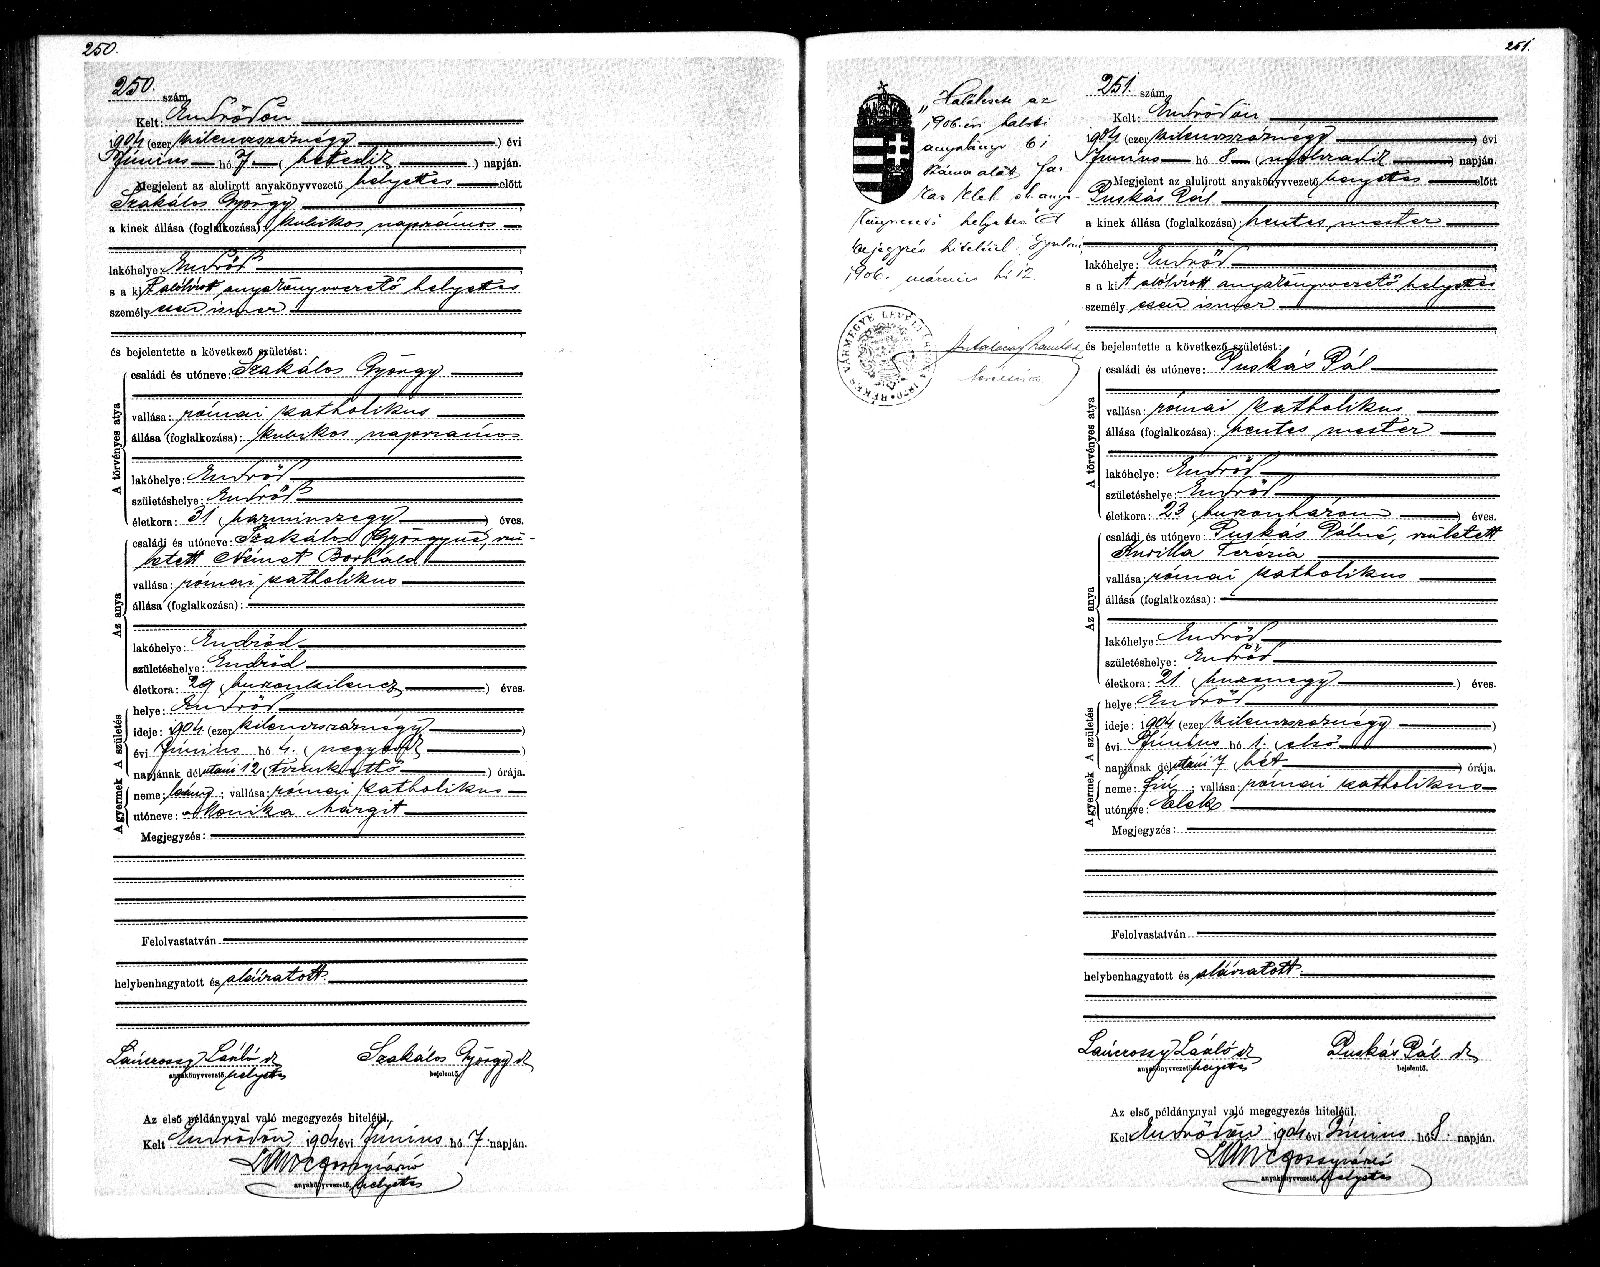 250.
250. szám.
Kelt: Endrődön
1904 (ezer kilenczszáznégy) évi
Június hó 7. (hetedik) napján.
Megjelent az alulirott anyakönyvvezető helyettes előtt
Szakálos György
a kinek állása (foglalkozása): kubikos napszámos
lakóhelye: Endrőd
s a kit alólirott anyakönyvvezető helyettes
személyesen ismer
és bejelentette a következő születést:
A törvényes atya
családi és utóneve: Szakálos György
vallása: római katholikus
állása (foglalkozása): kubikos napszámos
lakóhelye: Endrőd
születéshelye: Endrőd
életkora: 31 (harminczegy) éves.
Az anya
családi és utóneve: Szakálos Györgyné, szü-
letett Német Borbála
vallása: római katholikus
állása (foglalkozása):
lakóhelye: Endrőd
születéshelye: Endrőd
életkora: 29 (huszonkilencz) éves.
A születés
helye: Endrőd
ideje: 1904 (ezer kilenczszáznégy)
évi Június hó 4. (negyedik)
napjának délutáni 12 (tizenkettő) órája.
A gyermek
neme: leány; vallása: római katholikus
utóneve: Monika Margit
Megjegyzés:
Felolvastatván
helybenhagyatott és aláíratott.
Lánczossy László sk
anyakönyvvezető helyettes
Szakálos György sk
bejelentő.
Az első példánynyal való megegyezés hiteléül.
Kelt Endrődön, 1904 évi Június hó 7. napján.
anyakönyvvezető helyettes
251.
"Halálesete az
1906. évi halotti
anyakönyv 61
száma alatt. Far-
kas Elek sk. anya-
könyvvezető helyettes" Ezt
bejegyzés hiteléül. Gyulán,
1906. március hó 12
BÉKÉS VÁRMEGYE LEVÉLTÁRA
251. szám.
Kelt: Endrődön
1904 (ezer kilenczszáznégy) évi
Június hó 8 (nyolczadik) napján.
Megjelent az alulirott anyakönyvvezető helyettes előtt
Puskás Pál
a kinek állása (foglalkozása): hentes mester
lakóhelye: Endrőd
s a kit alólirott anyakönyvvezető helyettes
személyesen ismer
és bejelentette a következő születést:
A törvényes atya
családi és utóneve: Puskás Pál
vallása: római katholikus
állása (foglalkozása): hentes mester
lakóhelye: Endrőd
születéshelye: Endrőd
életkora: 23 (huszonhárom) éves.
Az anya
családi és utóneve: Puskás Pálné, született
Kurilla Terézia
vallása: római katholikus
állása (foglalkozása):
lakóhelye: Endrőd
születéshelye: Endrőd
életkora: 21 (huszonegy) éves.
A születés
helye: Endrőd
ideje: 1904 (ezer kilenczszáznégy)
évi Június hó 1. (első)
napjának délutáni 7 (hét) órája.
A gyermek
neme: fiú; vallása: római katholikus
utóneve: Elek
Megjegyzés:
Felolvastatván
helybenhagyatott és aláíratott.
Lánczossy László sk
anyakönyvvezető helyettes
Puskás Pál sk
bejelentő.
Az első példánynyal való megegyezés hiteléül.
Kelt Endrődön 1904 évi Június hó 8. napján.
anyakönyvvezető helyettes